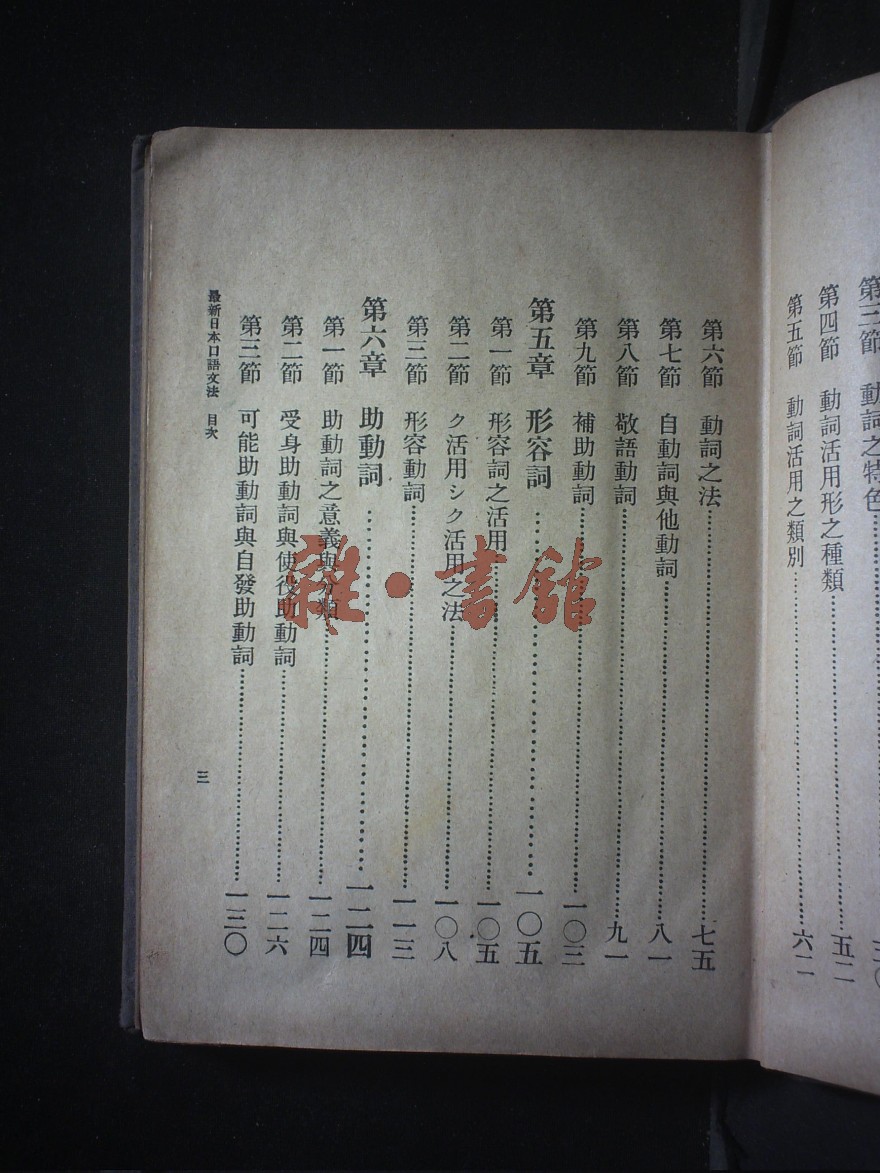 第三節　動詞之特色
第四節　動詞活用形之種類…………五二
第五節　動詞活用之類別…………六二
第六節　動詞之法…………七五
第七節　自動詞與他動詞…………八一
第八節　敬語動詞…………九一
第九節　補助動詞…………一〇三
第五章　形容詞…………一〇五
第一節　形容詞之活用…………一〇五
第二節　ク活用シク活用之法…………一〇八
第三節　形容動詞…………一一三
第六章　助動詞…………一二四
第一節　助動詞之意義與分類…………一二四
第二節　受身助動詞與使役助動詞…………一二六
第三節　可能助動詞與自發助動詞…………一三〇
最新日本口語文法　目次
三
雜·書館